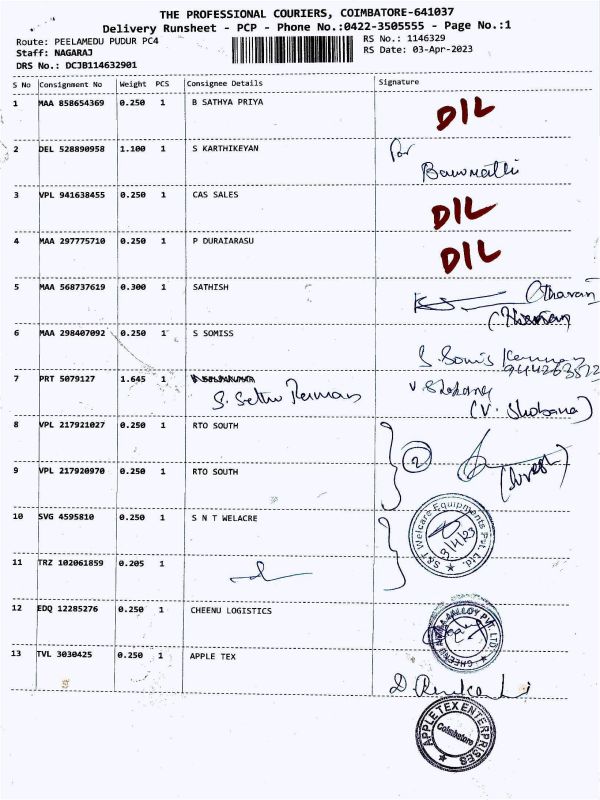 THE PROFESSIONAL COURIERS, COIMBATORE-641037
Delivery Runsheet - PCP - Phone No.:0422-3505555 - Page No.:1
Route: PEELAMEDU PUDUR PC4
RS No.: 1146329
Staff: NAGARAJ
RS Date: 03-Apr-2023
DRS No.: DCJB114632901
S No Consignment No Weight PCS Consignee Details Signature
1 MAA 858654369 0.250 1 B SATHYA PRIYA DIL
2 DEL 528890958 1.100 1 S KARTHIKEYAN For
3 VPL 941638455 0.250 1 CAS SALES DIL
4 MAA 297775710 0.250 1 P DURAIARASU DIL
5 MAA 568737619 0.300 1 SATHISH
6 MAA 298407092 0.250 1 S SOMISS
7 PRT 5079127 1.645 1
V. Shobana
(V. Shobana)
8 VPL 217921027 0.250 1 RTO SOUTH 2
9 VPL 217920970 0.250 1 RTO SOUTH
10 SVG 4595810 0.250 1 S N T WELACRE
S&T Welcare Equipments Pvt. Ltd.
3/4/23
11 TRZ 102061859 0.205 1
12 EDQ 12285276 0.250 1 CHEENU LOGISTICS
13 TVL 3030425 0.250 1 APPLE TEX
APPLE TEX ENTERPRISES
Coimbatore